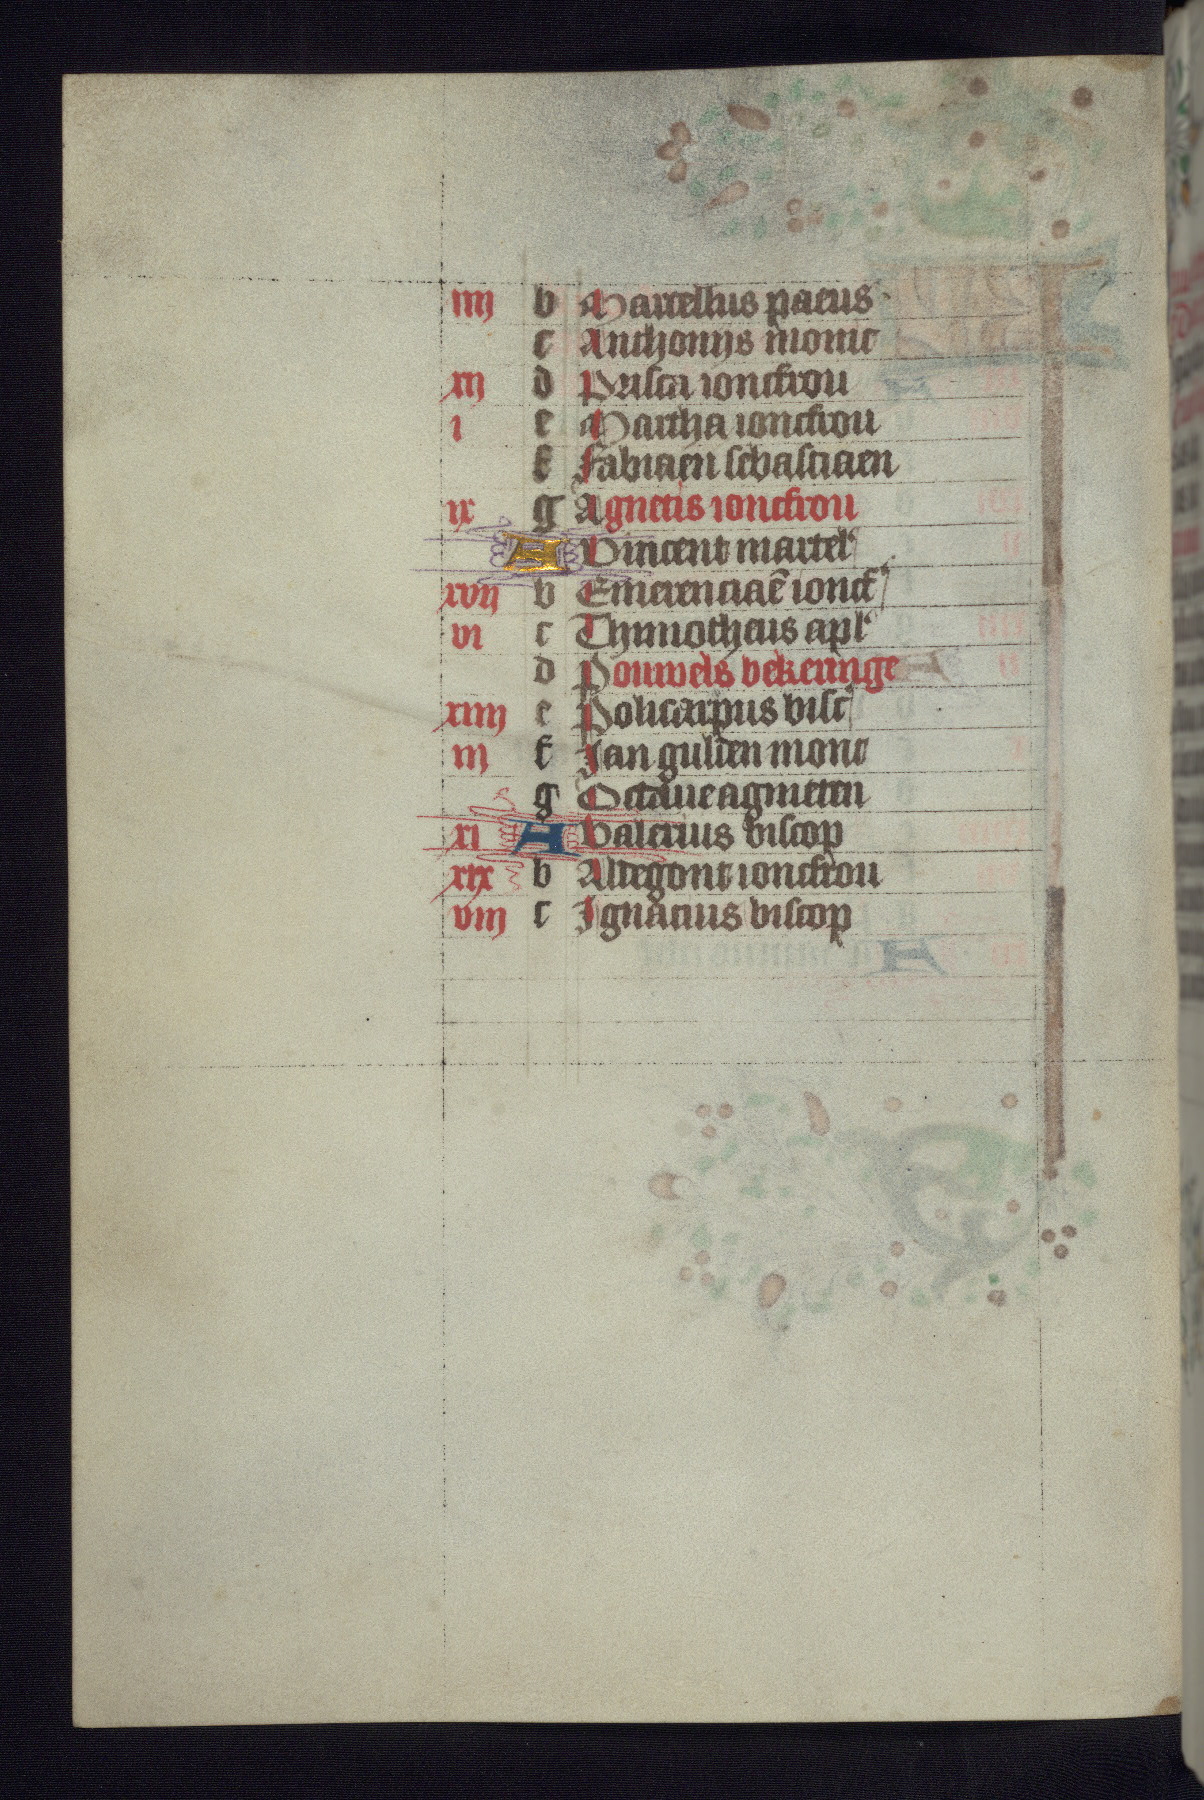 iiij b Marcellus paeus
c Anthonijs monic
xij d Prisca ioncfrou
i e Martha ioncfrou
f Fabiaen sebastiaen
ix g Agnetis ioncfrou
A Vincent martel
xvij b Emerenciaē ioncf
vi c Thimotheus apl
d Pouwels bekeringe
xiiij e Policarpus bisc
iij f Jan gulden mont
g Octave agnieten
xi A Valerius biscop
xix b Aldegont ioncfrou
viij c Ignacius biscop